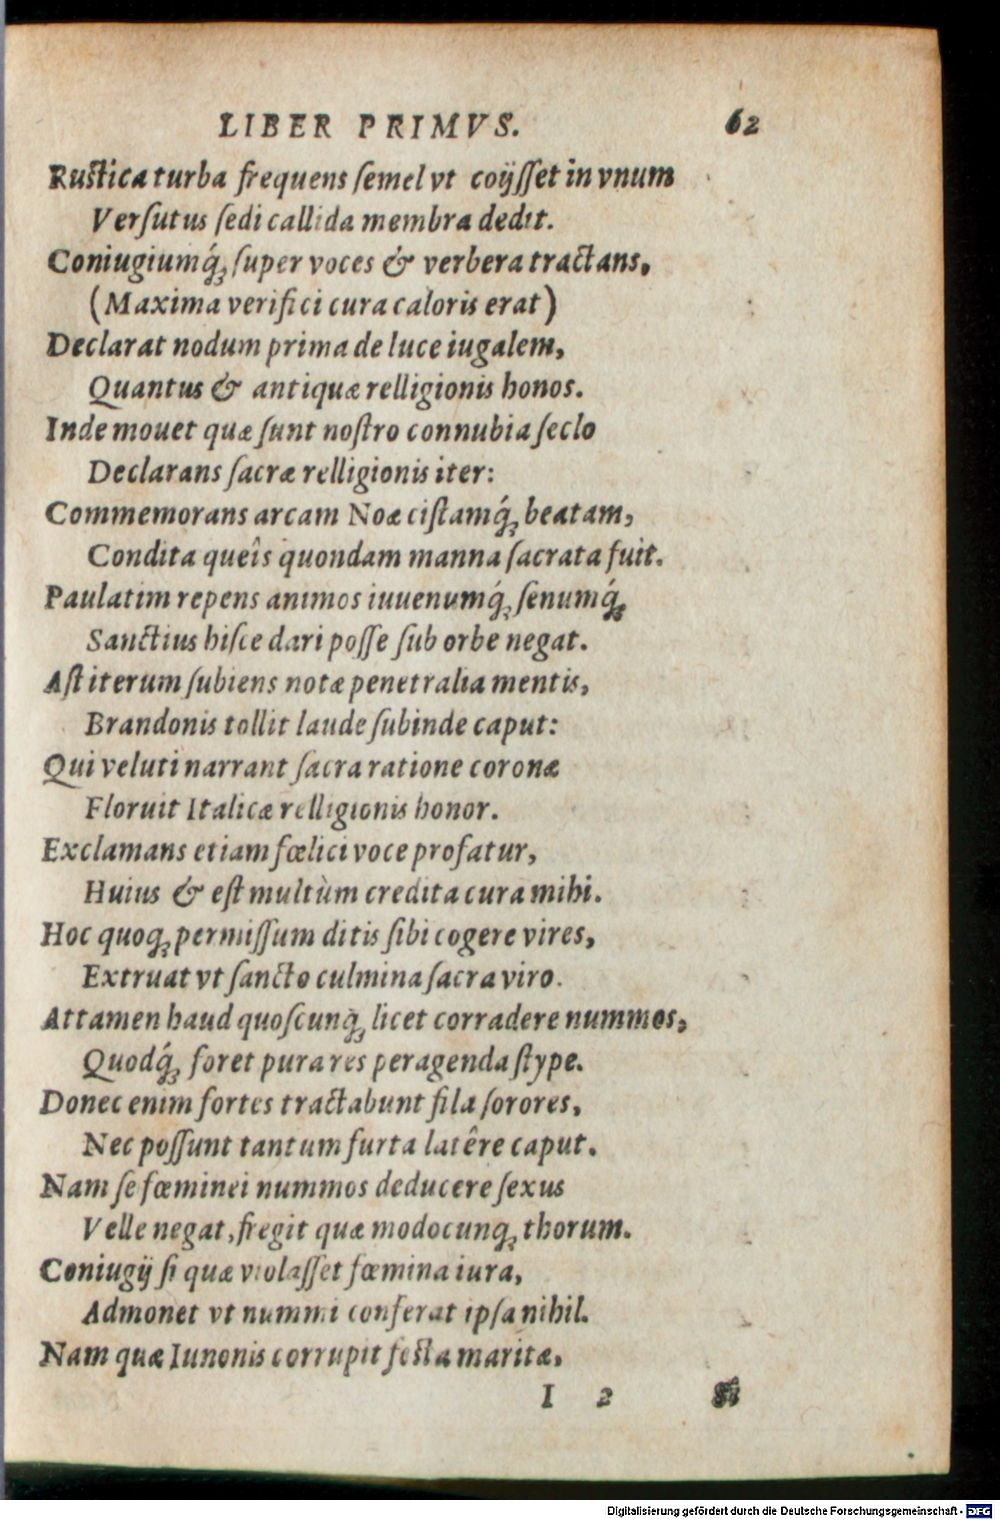 LIBER PRIMVS. 62
Rustica turba frequens ſemel vt coijſſet in vnum
Verſutus ſedi callida membra dedit.
Coniugiumq́ꝫ ſuper voces & verbera tractans,
(Maxima verifici cura caloris erat)
Declarat nodum prima de luce iugalem,
Quantus & antiquæ relligionis honos.
Inde mouet quæ ſunt noſtro connubia ſeclo
Declarans ſacræ relligionis iter:
Commemorans arcam Noæ ciſtamq́ꝫ beatam,
Condita queîs quondam manna ſacrata fuit.
Paulatim repens animos iuuenumq́ꝫ ſenumq́ꝫ
Sanctius hiſce dari poſſe ſub orbe negat.
Aſt iterum ſubiens notæ penetralia mentis,
Brandonis tollit laude ſubinde caput:
Qui veluti narrant ſacra ratione coronæ
Floruit Italicæ relligionis honor.
Exclamans etiam fœlici voce profatur,
Huius & eſt multùm credita cura mihi.
Hoc quoqꝫ permiſſum ditis ſibi cogere vires,
Extruat vt ſancto culmina ſacra viro.
Attamen haud quoſcunq́ꝫ licet corradere nummos,
Quodq́ꝫ foret pura res peragenda ſtype.
Donec enim fortes tractabunt fila ſorores,
Nec poſſunt tantum furta latêre caput.
Nam ſe fœminei nummos deducere ſexus
Velle negat, fregit quæ modocunqꝫ thorum.
Coniugij ſi quæ violaſſet fœmina iura,
Admonet vt nummi conferat ipſa nihil.
Nam quæ Iunonis corrupit feſta maritæ,
I 2
Digitalisierung gefördert durch die Deutsche Forschungsgemeinschaft - DFG